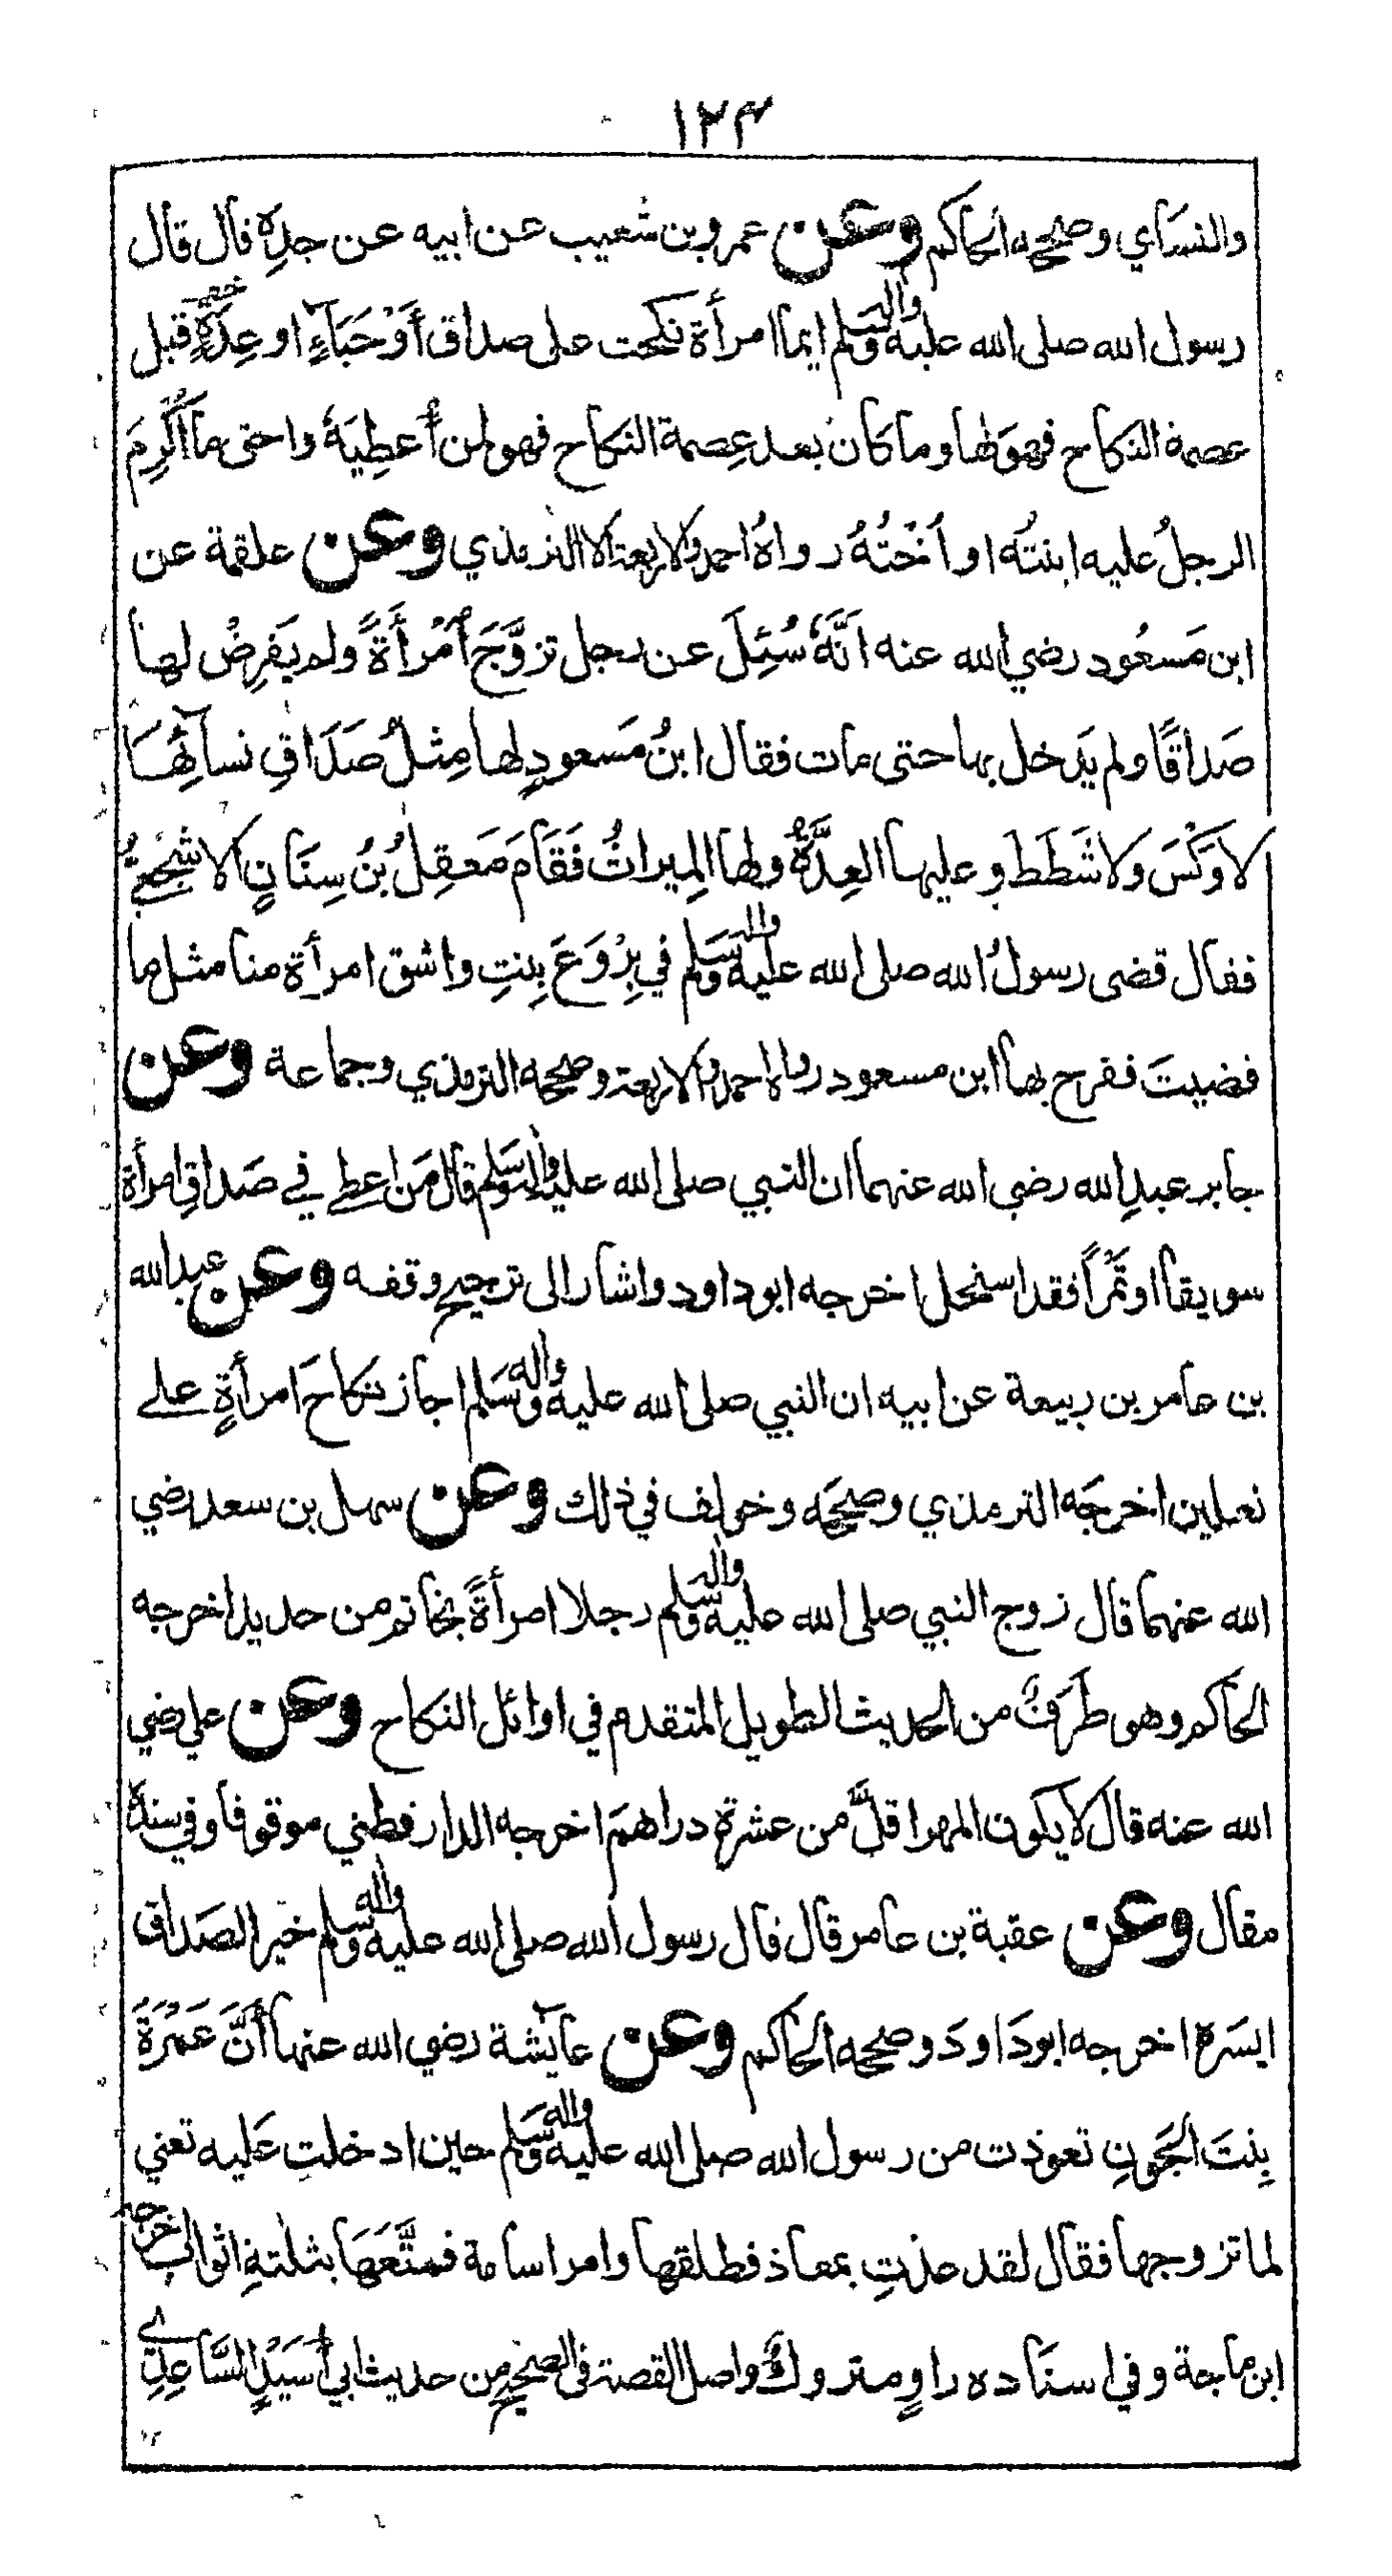 ١٢٣
والنساي وصححه الحاكم وعن عمرو بن شعيب عن ابيه عن جدِه قال قال
رسول الله صلى الله عليه واله وسلم ايما امرأة نكحت على صداق أَوْ حَبَاءٍ او عِدَةٍ قبل
عصمة النكاح فهوَ لها وما كان بعد عِصمة النكاح فهو لمن أُعطِيَهُ واحق ما اُكْرِمَ
الرجلُ عليه ابنتُه او اُختُهُ رواهُ احمد والاربعة الا الترمذي وعن علقمة عن
ابن مَسعُود رضي الله عنه انَّهُ سُئِلَ عن رجل تزوَّجَ امْرأَةً ولم يَفرِضْ لها
صَداقًا ولم يَدخل بها حتى مات فقال ابنُ مَسعودٍ لها مِثلُ صَدَاقِ نسآئِها
لا وَكْسَ ولا شَطَطَ وعليها العِدَّةُ ولها المِيراثُ فَقَامَ مَعقِلُ بنُ سِنَانٍ الاشْجَعِيُّ
فقال قضى رسولُ الله صلى الله عليه واله وسلم في بِرْوَعَ بِنتِ واشق امرأة منا مثل ما
قضيتَ ففرح بها ابن مسعود رواه احمد والاربعة وصححه الترمذي وجماعة وعن
جابر عبدِ الله رضي الله عنهما ان النبي صلى الله عليه واله وسلم قال مَن اعطى في صَداقِ امرأة
سويقا او تَمْراً فقد استحل اخرجه ابوداود واشار الى ترجيح وقفه وعن عبدالله
بن عامر بن ربيعة عن ابيه ان النبي صلى الله عليه واله وسلم اجاز نكاحَ امرأةٍ على
نعلين اخرجَه الترمذي وصححَه وخولف في ذلك وعن سهل بن سعد رضي
الله عنهما قال زوج النبي صلى الله عليه واله وسلم رجلا امرأةً بخاتم من حديد اخرجه
الحاكم وهو طَرَفٌ من الحديث الطويل المتقدم في اوائل النكاح وعن علي رضي
الله عنه قال لا يكون المهر اقلَّ من عشرة دراهمَ اخرجه الدارقطني موقوفا وفي سنده
مقال وعن عقبة بن عامر قال قال رسول الله صلى الله عليه واله وسلم خير الصَداق
ايسَره اخرجه ابودَاودَ وصححه الحاكم وعن عايشة رضي الله عنها أنَّ عَمْرَةَ
بِنتَ الجَونِ تعوذت من رسول الله صلى الله عليه واله وسلم حين ادخلت عَليه تعني
لما تزوجها فقال لقد عذتِ بمعاذ فطلقها وامر اسامة فمتَّعَهَا بثلثةِ اثواب اخرجه
ابن ماجة وفي اسنَاده راوٍ متروكٌ واصل القصة في الصحيح من حديث ابي أُسَيْدٍ السَّاعِدِي
١٢